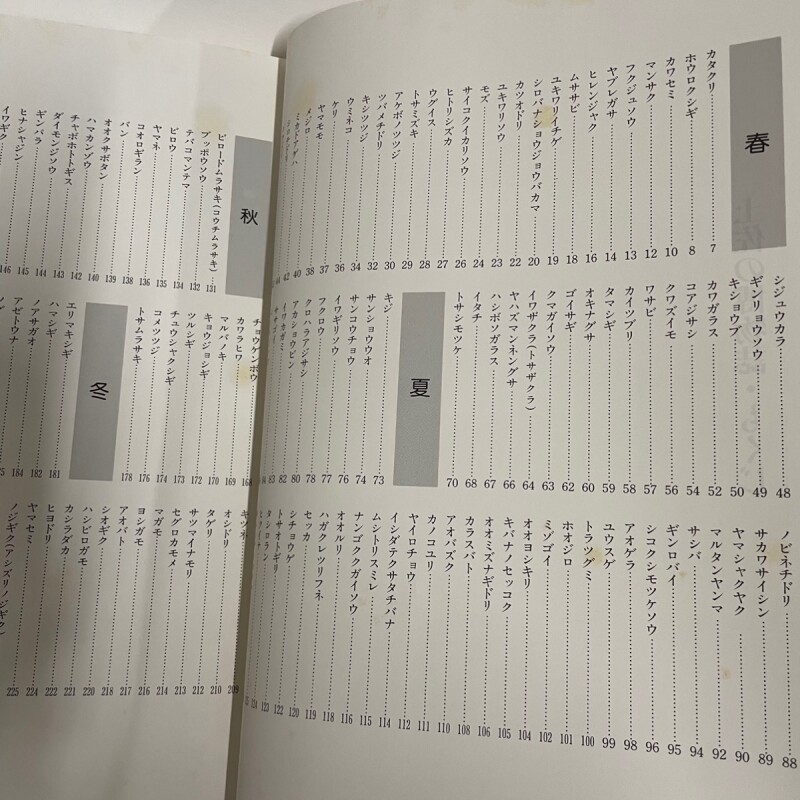 春
カタクリ 7
ホウロクシギ 8
カワセミ 10
マンサク 12
フクジュソウ 13
ヤブレガサ 14
ヒレンジャク 16
ムササビ 18
ユキワリイチゲ 19
シロバナショウジョウバカマ 20
カツオドリ 22
ユキワリソウ 23
モズ 24
サイコクイカリソウ 26
ヒトリシズカ 27
ウグイス 28
トサミズキ 29
アケボノツツジ 30
ツバメチドリ 32
キシツツジ 34
ウミネコ 36
ケリ 37
ヤマモモ 38
メジロ 40
ミカドアゲハ 42
シロチドリ 44
シジュウカラ 48
ギンリョウソウ 49
キショウブ 50
カワガラス 52
コアジサシ 54
クワズイモ 56
ワサビ 57
カイツブリ 58
タマシギ 59
オキナグサ 60
ゴイサギ 62
クマガイソウ 63
イワザクラ（トサザクラ） 64
ヤハズマンネングサ 66
ハシボソガラス 67
イタチ 68
トサシモツケ 70
夏
キジ 73
サンショウウオ 74
サンコウチョウ 76
イワギリソウ 77
フクロウ 78
クロハラアジサシ 80
アカショウビン 82
イワカガミ 83
ササゴイ
ノビネチドリ 88
サカワサイシン 89
ヤマシャクヤク 90
マルタンヤンマ 92
サシバ 94
ギンロバイ 95
シコクシモツケソウ 96
アオゲラ 98
ユウスゲ 99
トラツグミ 100
ホオジロ 101
ミゾゴイ 102
オオヨシキリ 104
キバナノセッコク 105
オオミズナギドリ 106
カラスバト 108
アオバズク 110
カノコユリ 111
ヤイロチョウ 112
イシダテクサタチバナ 114
ムシトリスミレ 115
ナンゴククガイソウ 116
オオルリ 118
ハガクレツリフネ 119
セッカ 120
シチョウゲ 122
トサオトギリ 123
タシロラン 124
ヒクイナ
秋
ビロードムラサキ（コウチムラサキ） 131
ブッポウソウ 132
テバコマンテマ 134
ビロウ 135
ヤマネ 136
コオロギラン 138
バン 139
オオクサボタン 140
ハマカンゾウ 142
チャボホトトギス 143
ダイモンジソウ 144
ギンバラ 145
ヒナシャジン 146
イワギク
チョウゲンボウ 168
カワラヒワ 169
マルバノキ 170
キョウジョシギ 172
ツルシギ 173
チュウシャクシギ 174
コメツツジ 176
トサムラサキ 178
冬
エリマキシギ 181
ハマシギ 182
ノアサガオ 184
アゼトウナ
キツネ 209
オシドリ 210
タゲリ 212
サツマイナモリ 213
セグロカモメ 214
マガモ 216
ヨシガモ 217
アオバト 218
シオギク 220
ハシビロガモ 221
カシラダカ 222
ヒヨドリ 224
ヤマセミ 225
ノジギク（アシズリノジギク）